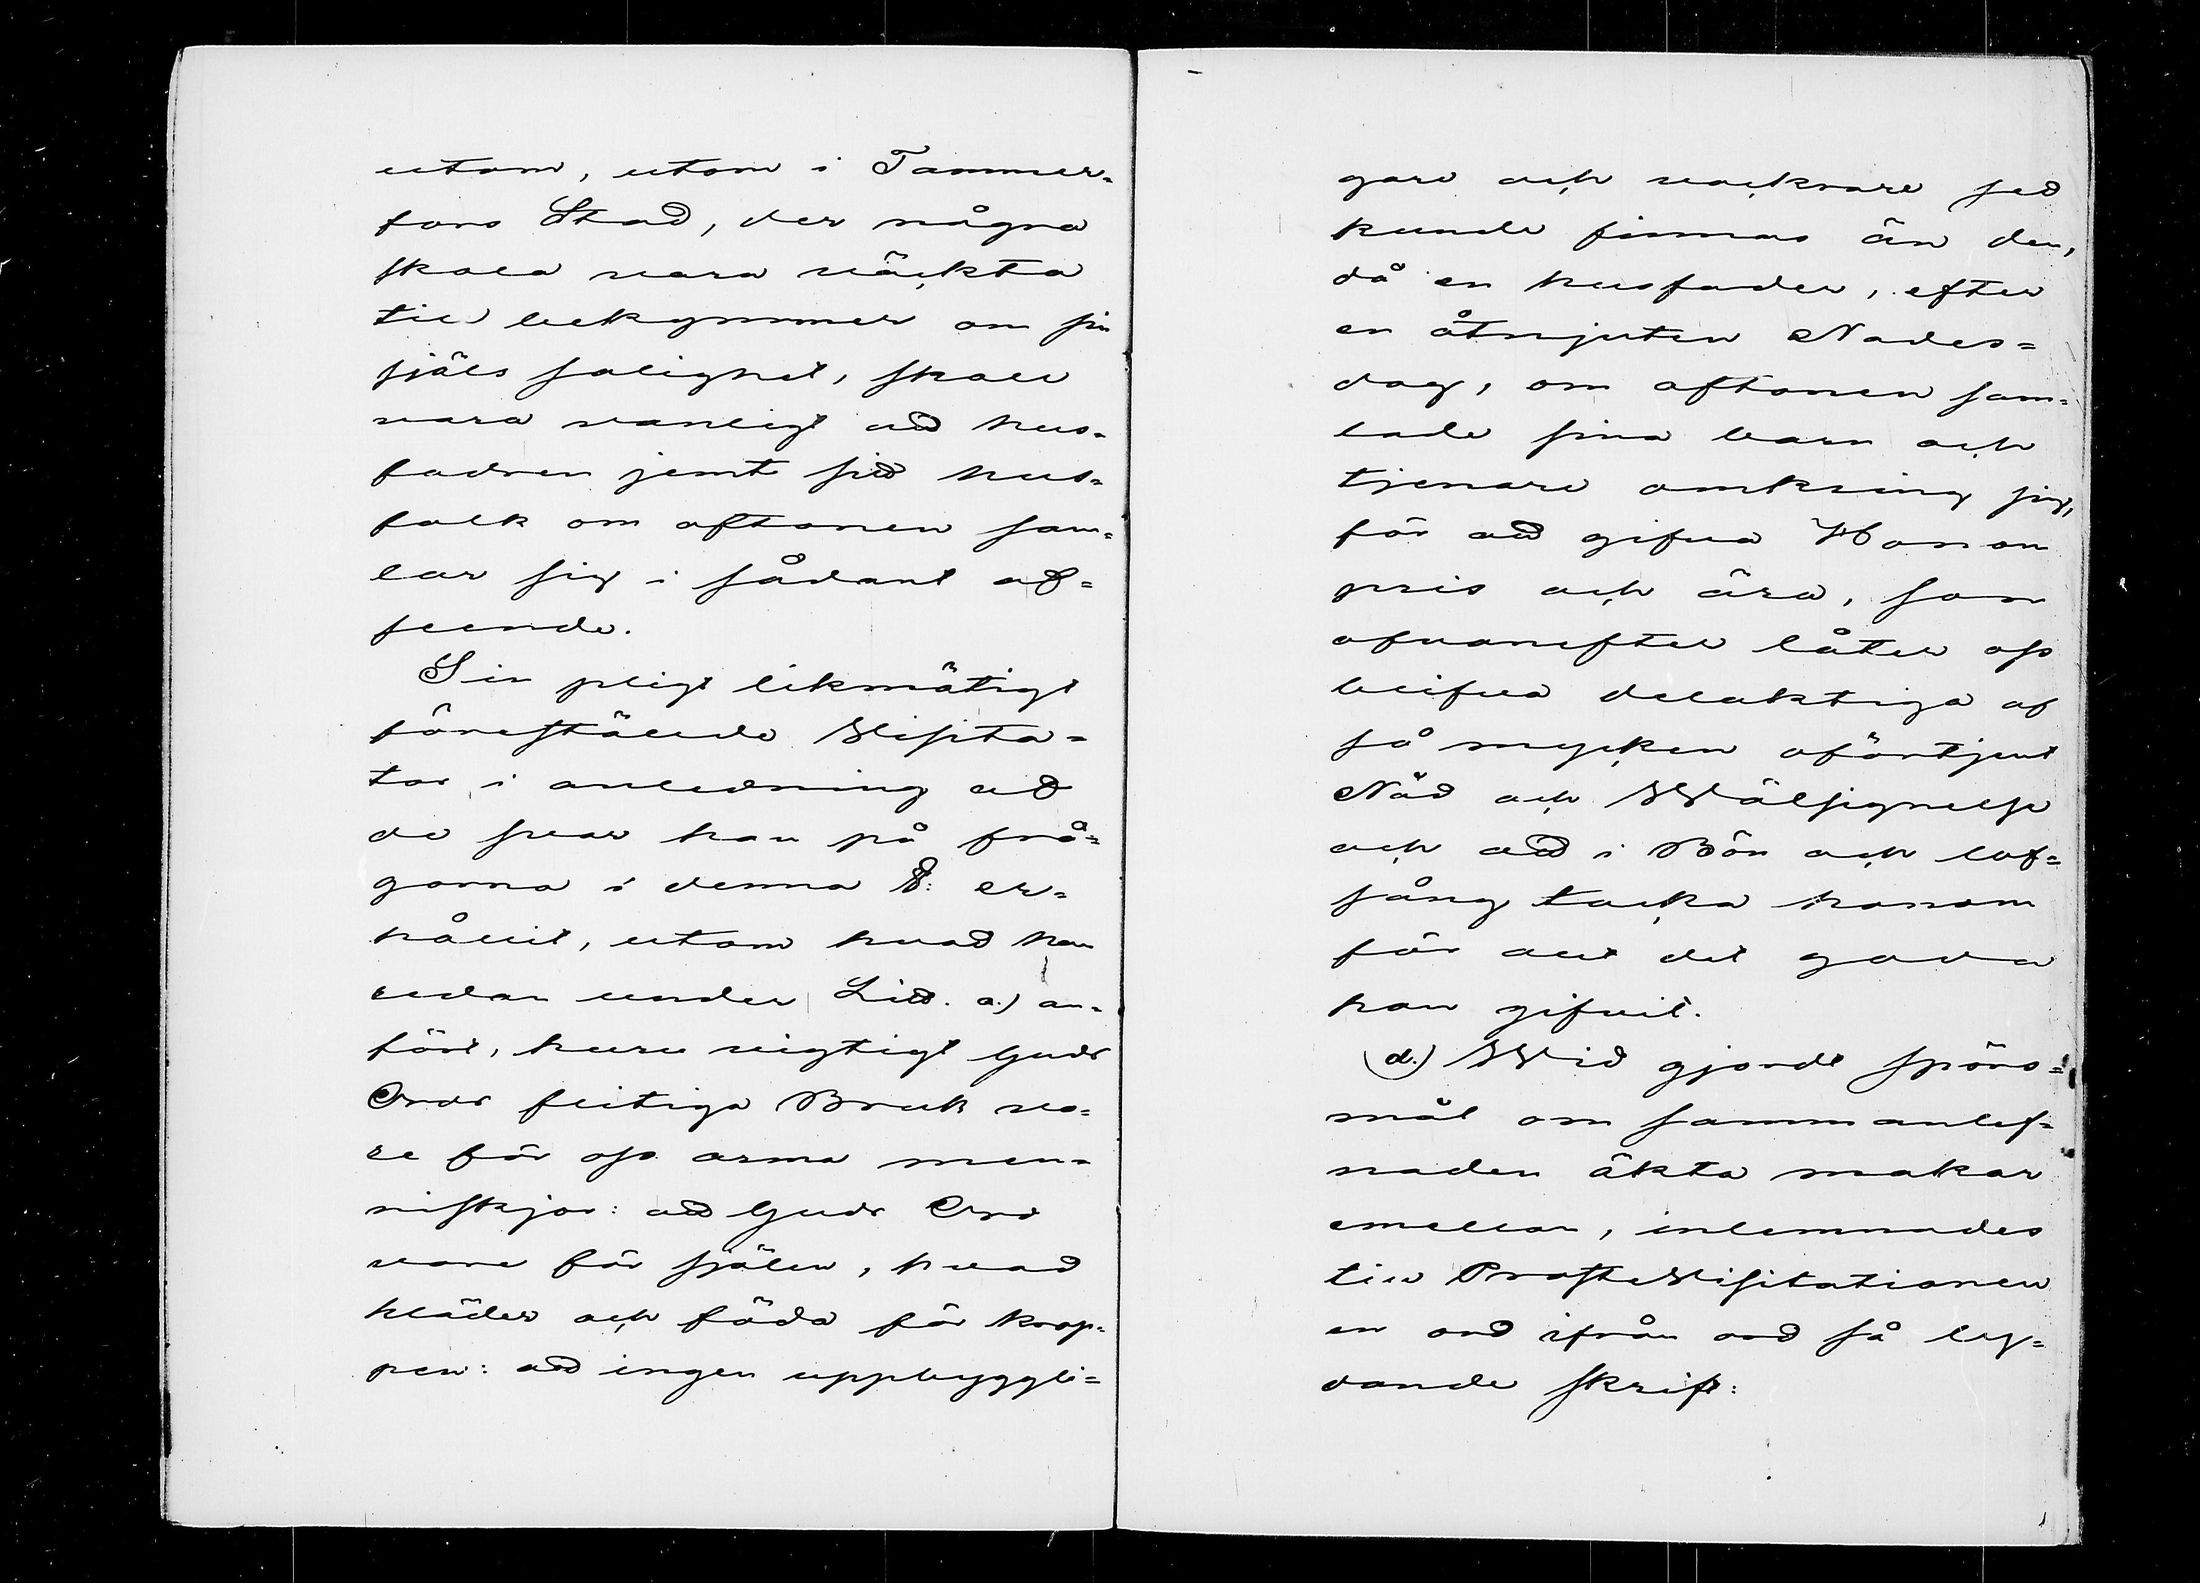 utom, utom i Tammer-
fors Stad, der några
skola vara väckta
till bekymmer om sin
själs salighet, skall
vara vanligt att hus-
fadren jemt sitt hus-
folk om aftonen sam-
lar sig i sådant af-
seende.
Sin pligt likmätigt
föreställde Visita-
tor i anledning att
de svar han på frå-
gorna i denna §: er-
hållit, utom hvad han
redan under Litt. a.) an-
fört, huru vigtigt Guds
Ords flitiga Bruk vo-
re för oss arma men-
niskjor: att Guds Ord
vore för själen, hvad
kläder och föda för krop-
pen: att ingen uppbyggli=
gare och vackrare sed
kunde finnas än den,
då en husfader, efter
en åtnjuten Nades=
dag, om aftonen sam=
lade sina barn och
tjenare omkring sig,
för att gifva Honom
pris och ära, som
ofvanefter låter oss
blifva delaktiga af
så mycken oförtjent
Nåd och Wälsignelse
och att i Bön och lof=
sång tacka honom
för allt det goda
han gifvit.
d.) Wid gjordt spörs=
mål om sammanlef=
naden äkta makar
emellan, inlemnades
till ProsteVisitationen
en ord ifrån ord så ly=
dande skrift: